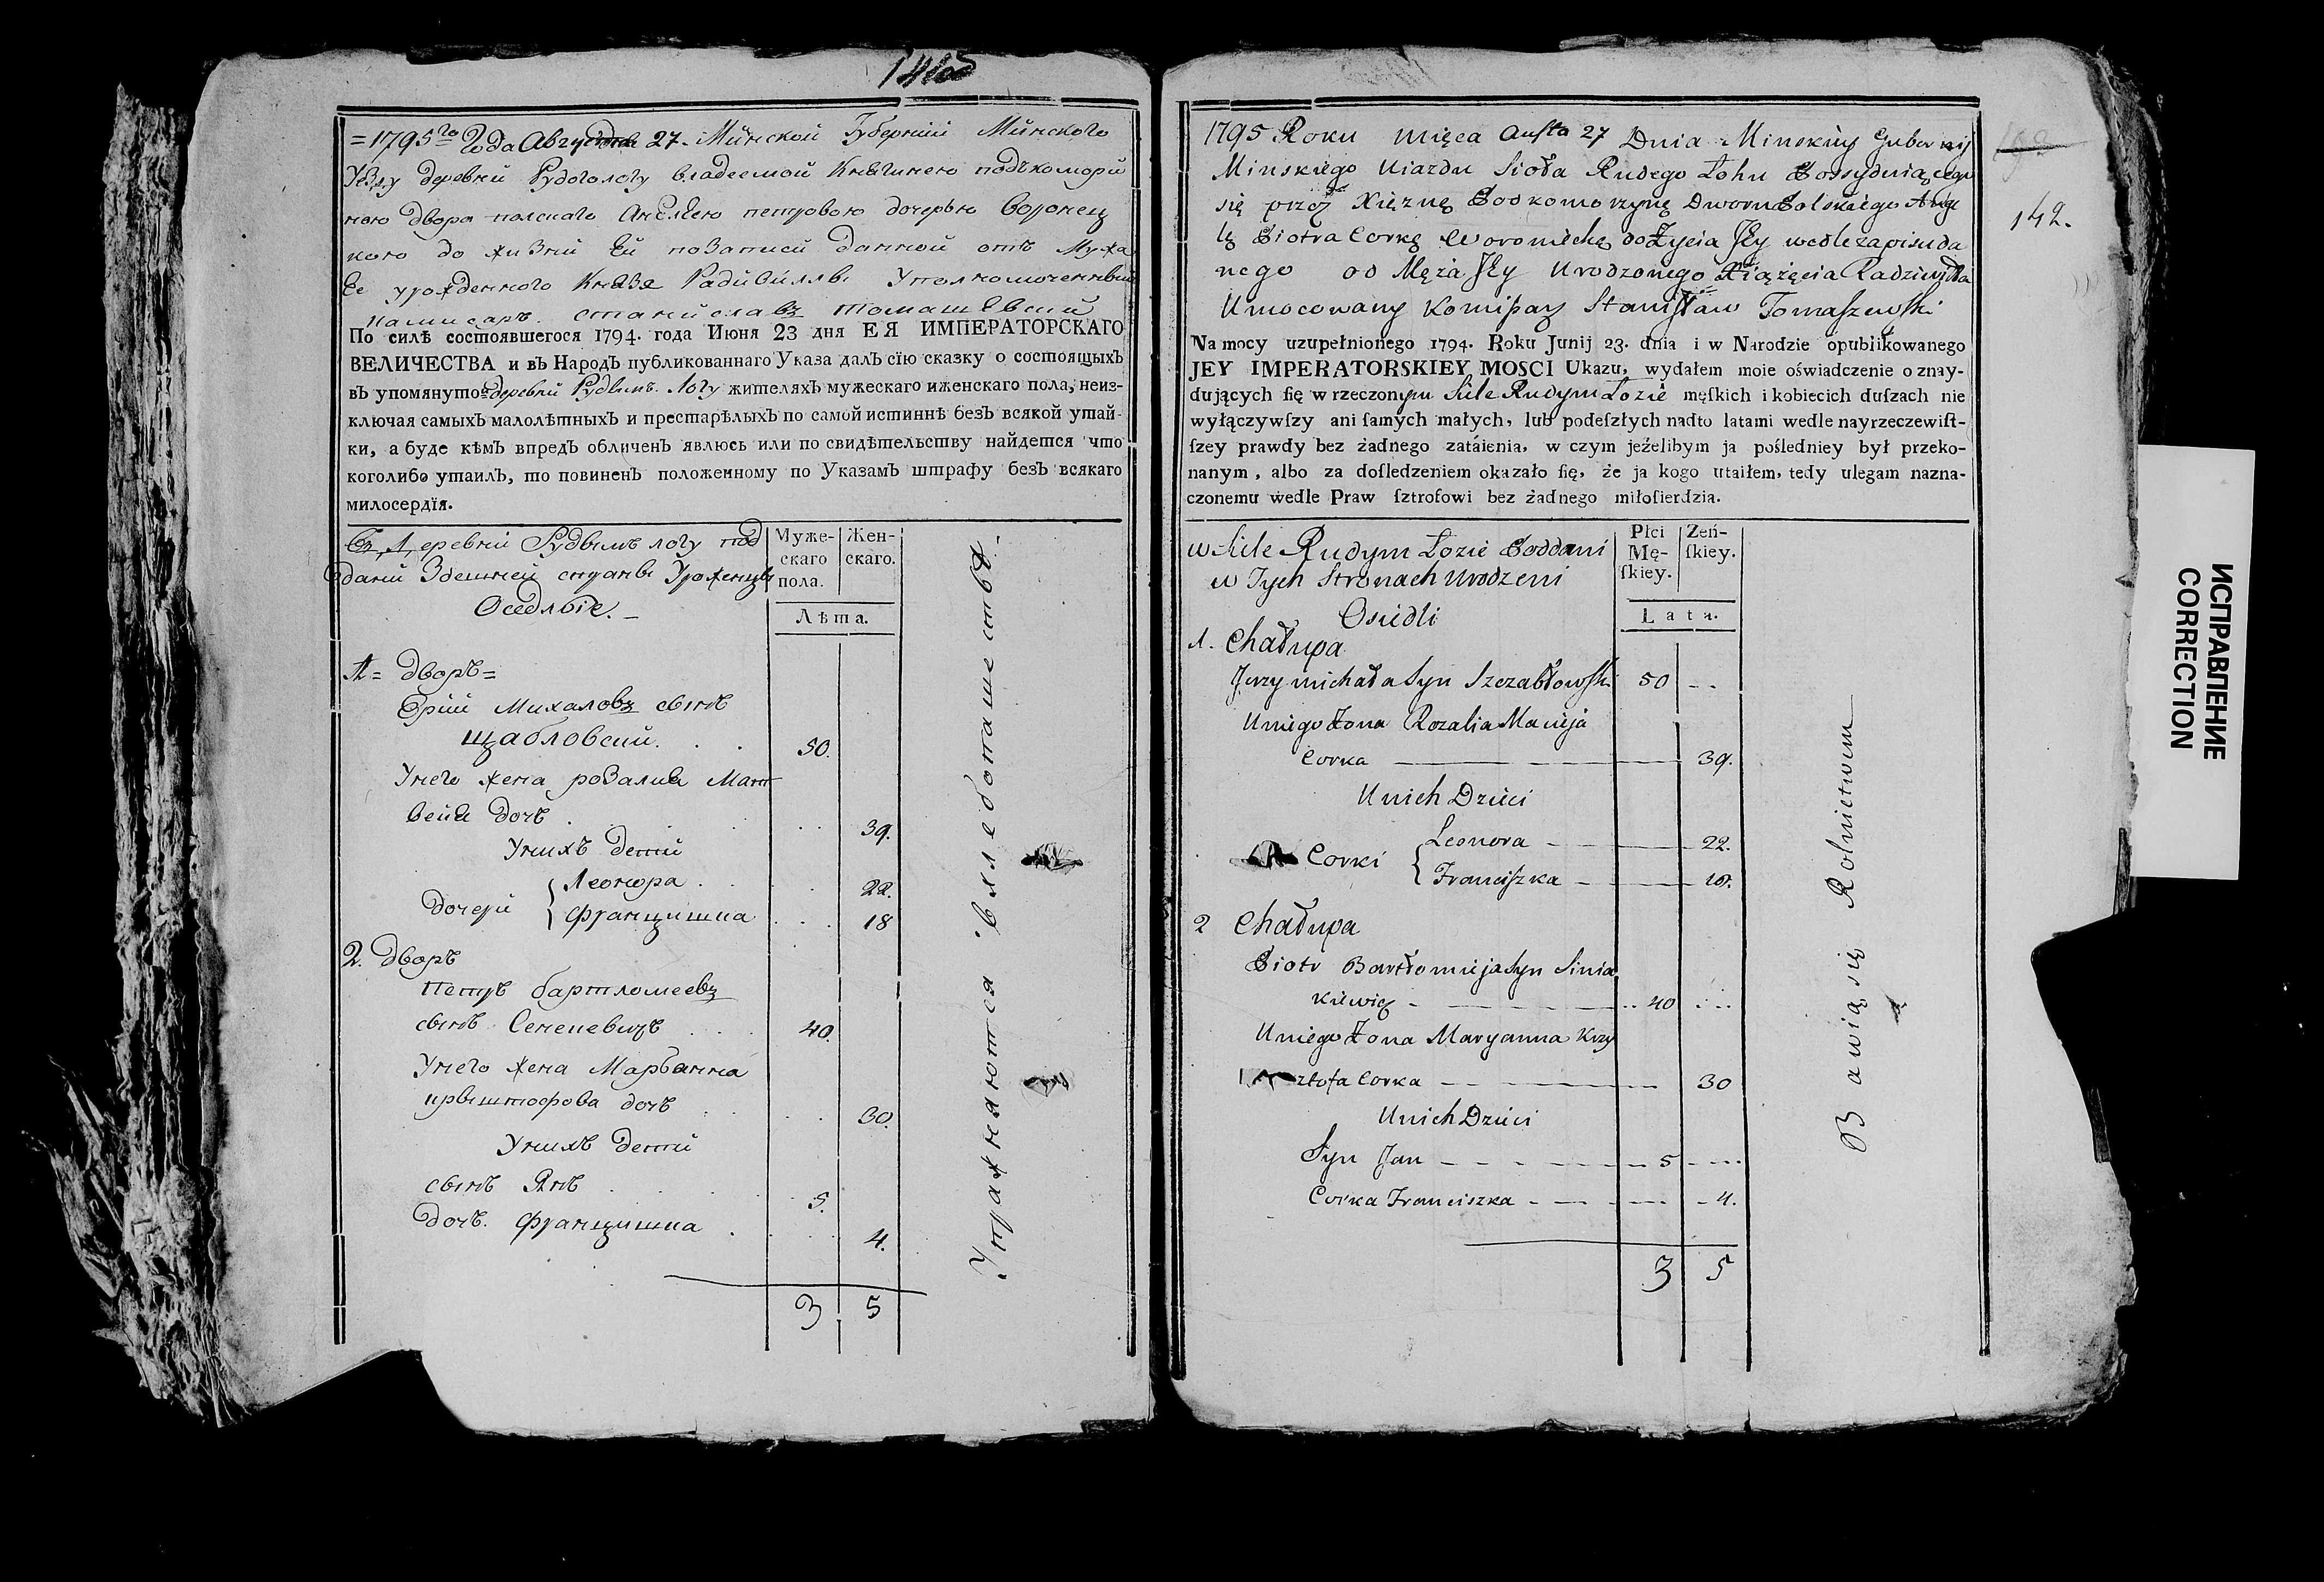 =1795го Года Августа 27. Минской Губернии Минского
Уезду деревни Рудогологу владеемой Княгинею подъкомори
ною двора полскаго Анелею петровою дочерью Воронец
кою до жизни Ей позаписи данной отъ Мужа
Ее урожденного Князя Радивилла Уполномоченный
Станиславъ Томашевский
По силѣ состоявшегося 1794. года Июня 23 дня ЕЯ ИМПЕРАТОРСКАГО
ВЕЛИЧЕСТВА и въ Народъ публикованнаго Указа далъ сїю сказку о состоящыхъ
въ упомянутой деревни Рудымъ Логу жителяхъ мужескаго иженскаго пола, неиз-
ключая самыхъ малолѣтныхъ и престарѣлыхъ по самой истиннѣ безъ всякой утай-
ки, а буде кѣмъ впредъ обличенъ явлюсь или по свидѣтельству найдется что
коголибо утаилъ, то повиненъ положенному по Указамъ штрафу безъ всякаго
милосердїя.
Въ Деревни Рудымъ логу под
даній Здешней страны Уроженцы
Оседлые.
Муже-
скаго
пола.
Жен-
скаго.
Лѣта.
1= дворъ=
Ерїй Михаловъ сынъ
Щабловский. 50.
Унего жена розалия Мат
вейя дочъ 39.
Унихъ дети
дочери { Леонора 22.
Францишка 18
2. дворъ
Петръ бартломеевъ
сынъ Сенкевичъ 40.
Унего жена Марьянна
крыштофова дочъ 30.
Унихъ дети
сынъ Янъ 5.
Дочъ. Францишка 4.
3 5
Упражняются вхлебопашестве.
1795 Roku Mięca Austa 27 Dnia Minskiey Gubernij
Minskiego Uiazdu Sioła Rudego Łohu Possyduiącego
się przez Xięznę Podkomorzynę Dworu Polskiego Ange
lę Piotra Corkę Woroniecką do Życia Jey wedle zapisu da
nego od Męża Jey Urodzonego Xiążęcia Radziwiłła
Umocowany Komissarz Stanisław Tomaszewski
Na mocy uzupełnionego 1794. Roku Junij 23. dnia i w Narodzie opublikowanego
JEY IMPERATORSKIEY MOSCI Ukazu, wydałem moie oświadczenie o znay-
duiących ſię w rzeczonym Siele Rudym Łozie męſkich i kobiecich duſzach nie
wyłączywſzy ani ſamych małych, lub podeſzłych nadto latami wedle nayrzeczewiſt-
ſzey prawdy bez żadnego zatáienia, w czym jeźelibym ja poślednieỵ był przeko-
nanym, albo za doſledzeniem okazało ſię, że ja kogo utaiłem, tedy ulegam nazna-
czonemu wedle Praw ſztrofowi bez żadnego miłoſierdzia.
w Siele Rudym Łozie Poddani
w Tych Stronach Urodzeni
Osiedli
Płci
Mę-
ſkiey.
Zeń-
ſkiey.
Lata.
1. Chałupa
Jerzy michała Syn Szczabłowski 50
Uniego Żona Rozalia Macieja
Corka 39.
Unich Dzieci
Corki { Leonora 22.
Franciszka 18.
2 Chałupa
Piotr Bartłomieja Syn Sinia
kiewicz 40
Uniego Żona Maryanna Krzy
sztofa Corka 30
Unich Dzieci
Syn Jan 5
Corka Franciszka 4.
3 5
Bawią się Rolnictwem
142.
ИСПРАВЛЕНИЕ
CORRECTION